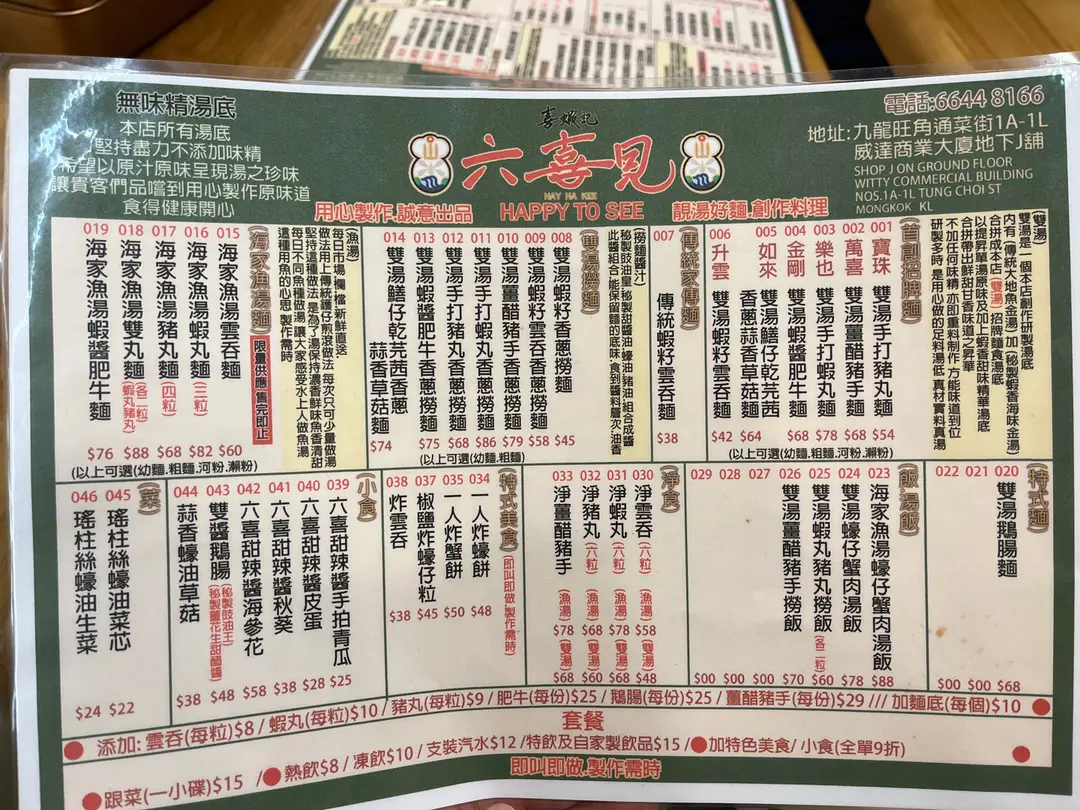 無味精湯底
本店所有湯底
堅持盡力不添加味精
希望以原汁原味呈現湯之珍味
讓貴客們品嚐到用心製作原味道
食得健康開心
喜蝦丸
六喜見
HAY HA KEE
HAPPY TO SEE
用心製作.誠意出品
靚湯好麵.創作料理
電話:6644 8166
地址:九龍旺角通菜街1A-1L
威達商業大廈地下J舖
SHOP J ON GROUND FLOOR
WITTY COMMERCIAL BUILDING
NOS.1A-1L TUNG CHOI ST
MONGKOK KL
(雙湯)
雙湯是一個本店創作研製湯底
內有(傳統大地魚金湯)加(秘製蝦香海味金湯)
合拼成本店(雙湯)招牌麵食湯底
以提昇單湯原味及加上蝦香甜味精華湯底
合拼帶出鮮甜甘香味道之昇華
不加任何味精 亦即重料制作 方能味道到位
研製多時 是用心做的足料湯低 真材實料真湯
(首創招牌麵)
001 寶珠 雙湯手打豬丸麵 $54
002 萬喜 雙湯薑醋豬手麵 $68
003 樂也 雙湯手打蝦丸麵 $78
004 金剛 雙湯蝦醬肥牛麵 $68
005 如來 雙湯鱔仔乾芫茜
香蔥蒜香草菇麵 $64
006 升雲 雙湯蝦籽雲吞麵 $42
(以上可選(幼麵.粗麵.河粉.瀨粉)
(傳統家傳麵)
007 傳統蝦籽雲吞麵 $38
(撈麵醬汁)
秘製豉油皇 秘製甜醬油 蠔油 豬油 組合成醬
此醬組合 能保留麵的底味 食到醬料層次 油香
(雙湯撈麵)
008 雙湯蝦籽香蔥撈麵 $45
009 雙湯蝦籽雲吞香蔥撈麵 $58
010 雙湯薑醋豬手香蔥撈麵 $79
011 雙湯手打蝦丸香蔥撈麵 $86
012 雙湯手打豬丸香蔥撈麵 $68
013 雙湯蝦醬肥牛香蔥撈麵 $75
014 雙湯鱔仔乾芫茜香蔥
蒜香草菇麵 $74
(以上可選(幼麵.粗麵)
(漁湯)
每日市場 欄 檔 新鮮直送.
做法用上傳統鑊仔煎滾做法 每次只可少量做湯
堅持這種做法 是為了湯保持濃香鮮味魚香清甜
每日不同魚種做湯 讓大家感受水上人做魚湯
這種用魚的心思 製作需時
(海家漁湯麵)
限量供應 售完即止
015 海家漁湯雲吞麵 $60
016 海家漁湯蝦丸麵 (三粒) $82
017 海家漁湯豬丸麵 (四粒) $68
018 海家漁湯雙丸麵 (各二粒) (蝦丸豬丸) $88
019 海家漁湯蝦醬肥牛麵 $76
(以上可選(幼麵.粗麵.河粉.瀨粉)
(特式麵)
020 雙湯鵝腸麵 $68
021 $00
022 $00
(飯湯飯)
023 海家漁湯蠔仔蟹肉湯飯 $88
024 雙湯蠔仔蟹肉湯飯 $78
025 雙湯蝦丸豬丸撈飯 (各二粒) $60
026 雙湯薑醋豬手撈飯 $70
027 $00
028 $00
029 $00
(淨食)
030 淨雲吞 (六粒) (漁湯) $58 (雙湯) $48
031 淨蝦丸 (六粒) (漁湯) $78 (雙湯) $68
032 淨豬丸 (六粒) (漁湯) $68 (雙湯) $60
033 淨薑醋豬手 (漁湯) $78 (雙湯) $68
(特式美食) (即叫即做.製作需時)
034 一人炸蠔餅 $48
035 一人炸蟹餅 $50
037 椒鹽炸蠔仔粒 $45
038 炸雲吞 $38
(小食)
039 六喜甜辣醬手拍青瓜 $25
040 六喜甜辣醬皮蛋 $28
041 六喜甜辣醬秋葵 $38
042 六喜甜辣醬海參花 $58
043 雙醬鵝腸 (秘製豉油王) (秘製薑花生甜醋醬) $48
044 蒜香蠔油草菇 $38
(菜)
045 瑤柱絲蠔油菜芯 $22
046 瑤柱絲蠔油生菜 $24
添加: 雲吞(每粒)$8 / 蝦丸(每粒)$10 / 豬丸(每粒)$9 / 肥牛(每份)$25 / 鵝腸(每份)$25 / 薑醋豬手(每份)$29 /// 加麵底(每個)$10
套餐
跟菜(一小碟)$15 / 熱飲$8 / 凍飲$10 / 支裝汽水$12 /特飲及自家製飲品$15 / 加特色美食/ 小食(全單9折)
即叫即做.製作需時